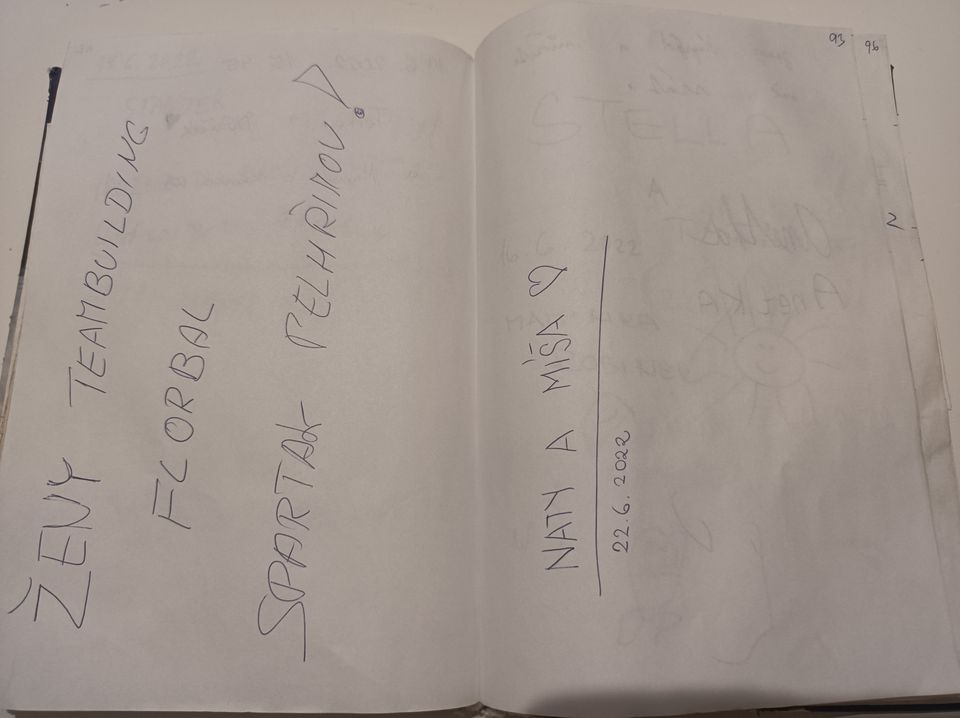 ŽENY TEAMBUILDING
FLORBAL
SPARTAK PELHŘIMOV!
NATY A MÍŠA ♡
22.6.2022
93
96
2